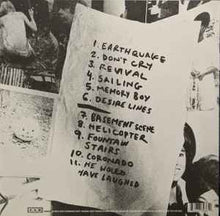 1. EARTHQUAKE
2. DON'T CRY
3. REVIVAL
4. SAILING
5. MEMORY BOY
6. DESIRE LINES
7. BASEMENT SCENE
8. HELICOPTER
9. FOUNTAIN
STAIRS
10. CORONADO
11. HE WOULD
HAVE LAUGHED